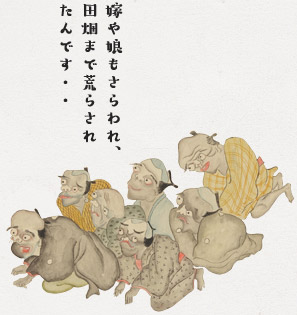 嫁や娘もさらわれ、
田畑まで荒らされ
たんです・・